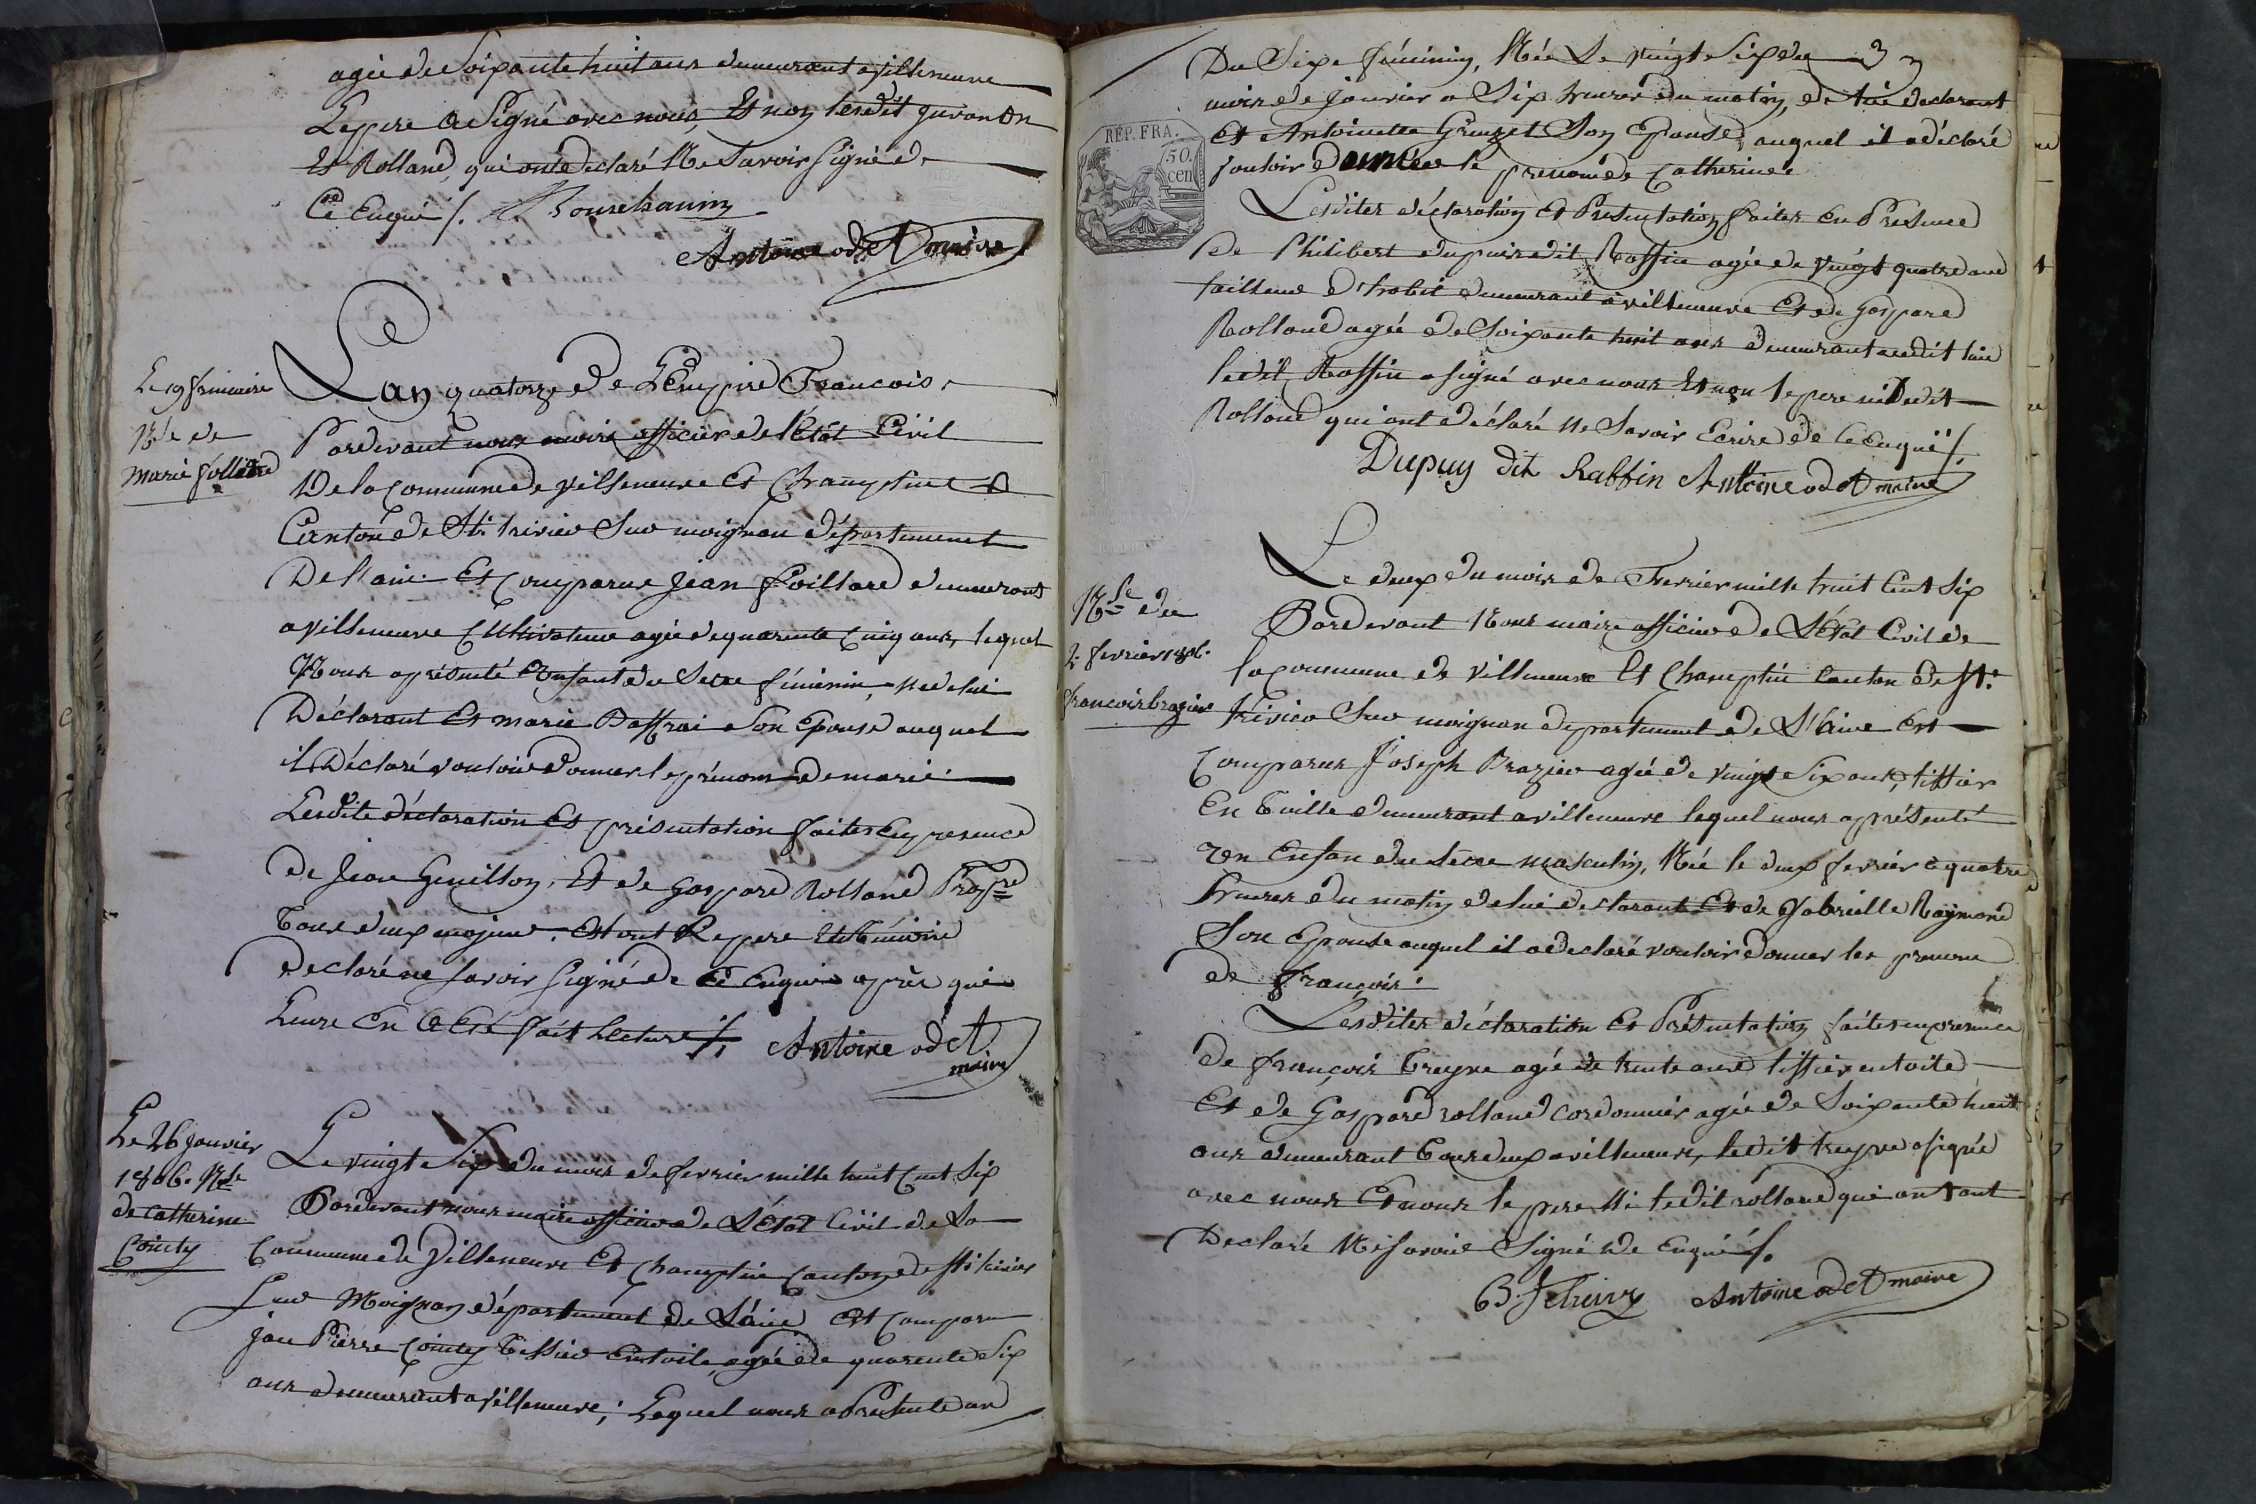 agée de Soixante huit ans demeurant a villeneuve
Le pere a Signé avec nous, Et non lesdit
Et Rolland, qui ont declaré Ne Savoir signé de
Ce Enqui /.
Antoine odet maire
Le 19 frimaire
Nce de
marie foillard
L'an quatorze de L'Empire Francois
Pardevant nous maire officier de l'Etat Civil
De la Commune de villeneuve Et Champtein
Canton de St. trivier Sur moignan département
De l'ain. Est Comparue Jean foillard demeurant
a villeneuve Cultivateur agée de quarente Cinq ans, lequel
Nous a présenté Enfant du Sexe féminin, né de lui
Déclarant Et marie Baffrai Son Epouse auquel
il Déclaré vouloir donner le prénom de marie.
Lesdite déclaration Et présentation faites En presence
de Jean Guillon, Et de Gaspard Rolland Propre
Tous deux majeur. Et ont Le pere Et témoins
declaré ne savoir Signé de Ce Enquis après que
Lecture En a Été fait Lecture /.
Antoine odet
maire
Le 26 janvier
1806. Nce
de Catherine
Cointy
Le vingt Six du mois de fevrier mille huit Cent Six
Pardevant nous maire officier de L'Etat Civil de La
Commune de Villeneuve Et Champtein Canton de St. trivier
Sur Moignan département de L'ain Est Comparu
jan Pierre Cointy Tessier En toile, agée de quarente Six
ans demeurant a villeneuve; Lequel nous a Presenté un
REP. FRA.
50.
cen
Du Sexe féminin, Née Le vingt Six du
mois de janvier a Six heures du matin, de lui declarant
Et Antoinette Greuzet Son Epouse, auquel il a déclaré
vouloir donner le prenom de Catherine.
Lesdites déclaration Et Presentation faites En Presence
De Philibert dupuis dit Raffin agée de vingt quatre ans
tailleur d'habit demeurant a villeneuve Et de Gaspard
Rolland agée de Soixante huit ans demeurant audit lieu
ledit Raffin a signé avec nous Et non le pere ni Ledit
Rolland qui ont déclaré Ne Savoir Ecrire de Ce Enqui /.
Dupuy dit Raffin Antoine odet maire
Nce du
2. fevrier 1806.
francois brazier
Le deux du mois de Fevrier mille huit Cent Six
Pardevant Nous maire officier de L'Etat Civil de
la Commune de Villeneuve Et Champtein Canton de St.
trivier Sur moignan département de L'ain Est
Comparus Joseph Brazier agée de vingt Six ans, tissier
En toille demeurant a villeneuve lequel nous a présenté
un Enfan du Sexe masculin, Née le deux fevrier a quatre
heures du matin de lui declarant Et de gabrielle Raymond
Son Epouse auquel il a declaré vouloir donner les prenom
de françois.
Lesdites déclaration Et Présentation faites en presence
De françois treyve agée de trente ans tissier en toile
Et de Gaspard rolland cordonnier agée de Soixante huit
ans demeurant tous deux a villeneuve, ledit treyve a signé
avec nous Et nons le pere Ni ledit rolland qui ont
Declaré Ne savoir Signé de Enquis /.
Antoine odet maire